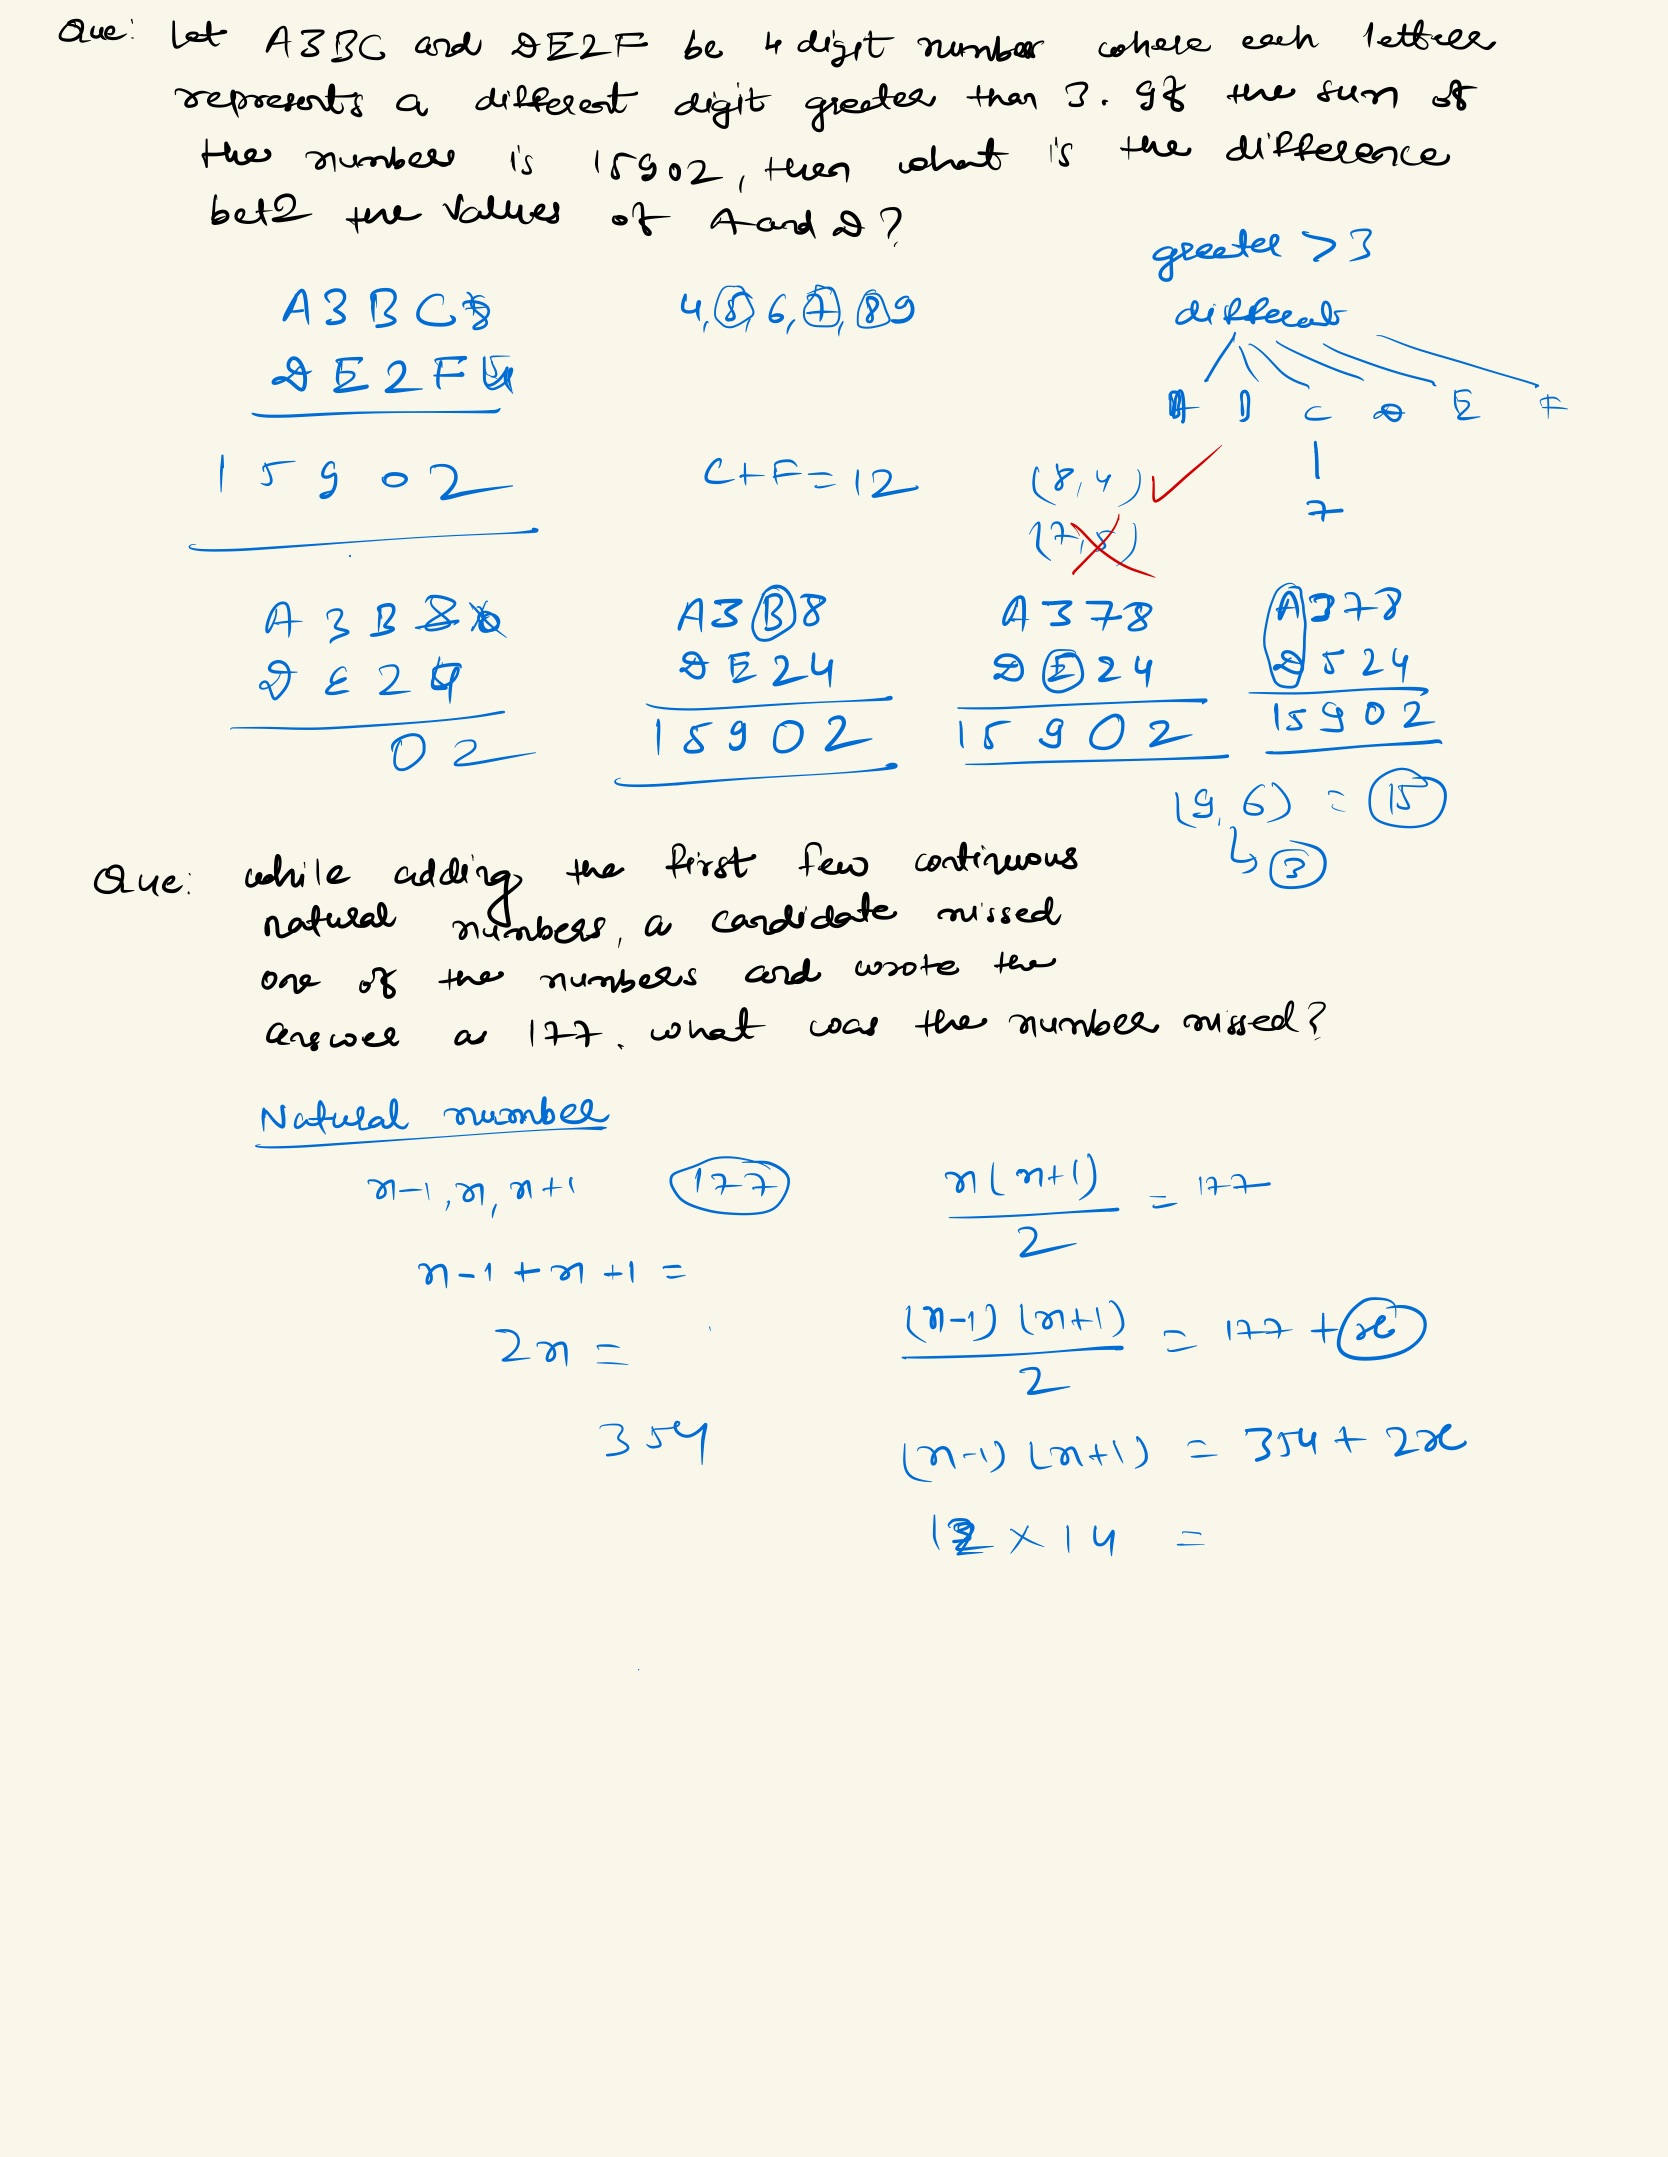 Que: Let A3BC and DE2F be 4 digit number where each letter
represents a different digit greater than 3. If the sum of
the numbers is 15902, then what is the difference
bet2 the values of A and D?
greater > 3
A 3 B C 4, 5, 6, 7, 8 9 different
D E 2 F
A B C D E F
1 5 9 0 2 C+F = 12 (8, 4) ✓ 7
(7, 5)
A 3 B 8 A 3 B 8 A 3 7 8 A 3 7 8
D E 2 4 D E 2 4 D E 2 4 D 5 2 4
0 2 1 5 9 0 2 1 5 9 0 2 1 5 9 0 2
(9, 6) = 15
↳ 3
Que: while adding the first few continuous
natural numbers, a candidate missed
one of the numbers and wrote the
answer as 177. what was the number missed?
Natural number
n-1, n, n+1 177 n(n+1)/2 = 177
n-1 + n+1 =
(n-1)(n+1)/2 = 177 + x
2n =
354 (n-1)(n+1) = 354 + 2x
12 × 14 =